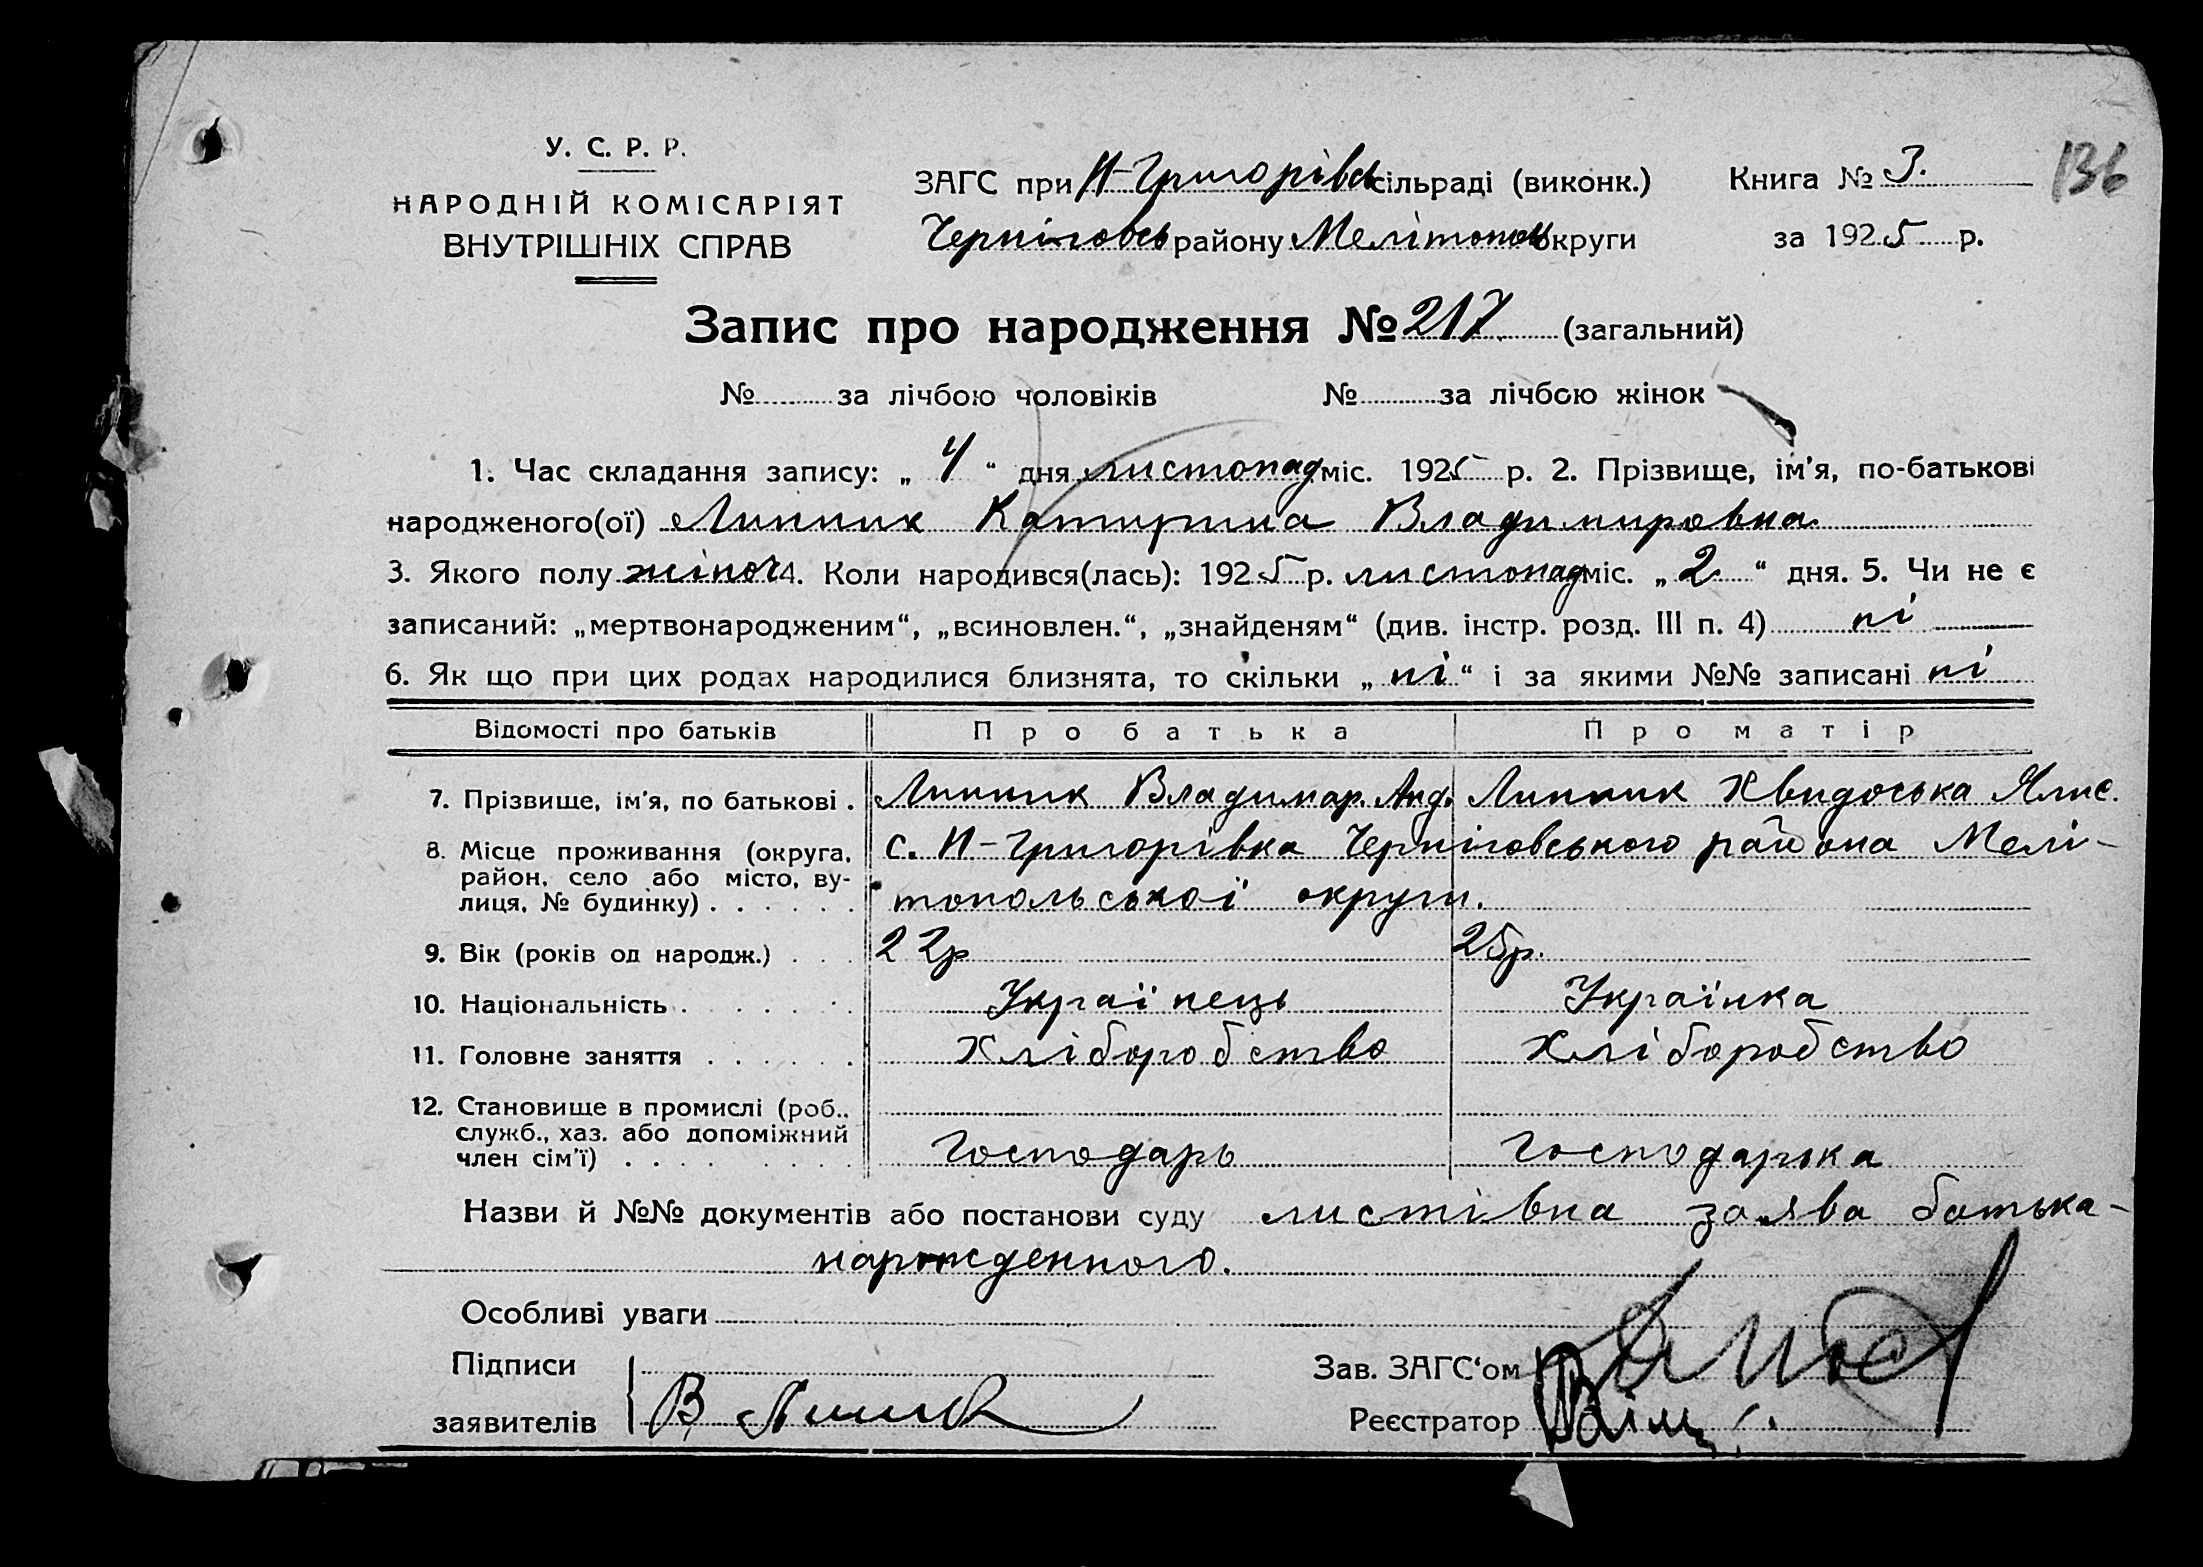 У. С. Р. Р.
НАРОДНІЙ КОМІСАРІЯТ
ВНУТРІШНІХ СПРАВ
ЗАГС при Н-Григорівсь сільраді (виконк.)
Черніговсь району Мелітополь округи
Книга № 3.
за 1925 р.
136
Запис про народження № 217. (загальний)
№ за лічбою чоловіків № за лічбою жінок
1. Час складання запису: „ 4 “ дня листопад міс. 1925 р. 2. Прізвище, ім’я, по-батькові
народженого(ої) Линник Катирина Владимировна
3. Якого полу жіноч 4. Коли народився(лась): 1925 р. листопад міс. „ 2 “ дня. 5. Чи не є
записаний: „мертвонародженим“, „всиновлен.“, „знайденям“ (див. інстр. розд. III п. 4) ні
6. Як що при цих родах народилися близнята, то скільки „ ні “ і за якими №№ записані ні
Відомості про батьків Про батька Про матір
7. Прізвище, ім’я, по батькові . Линник Владимар. Анд. Линник Хвидоська
8. Місце проживання (округа, с. Н-Григорівка Черніговського района Мелі-
район, село або місто, ву-
лиця, № будинку) . . . . . . топольської округи.
9. Вік (років од народж.) . . . 22р 25р.
10. Національність . . . . . . Українець Українка
11. Головне заняття . . . . . . Хліборобство Хліборобство
12. Становище в промислі (роб.,
служб., хаз. або допоміжний
член сім’ї) . . . . . . . . . Господарь Господарька
Назви й №№ документів або постанови суду листівна заява батька-
нарожденного.
Особливі уваги
Підписи
заявителів В Линник
Зав. ЗАГС‘ом
Реєстратор